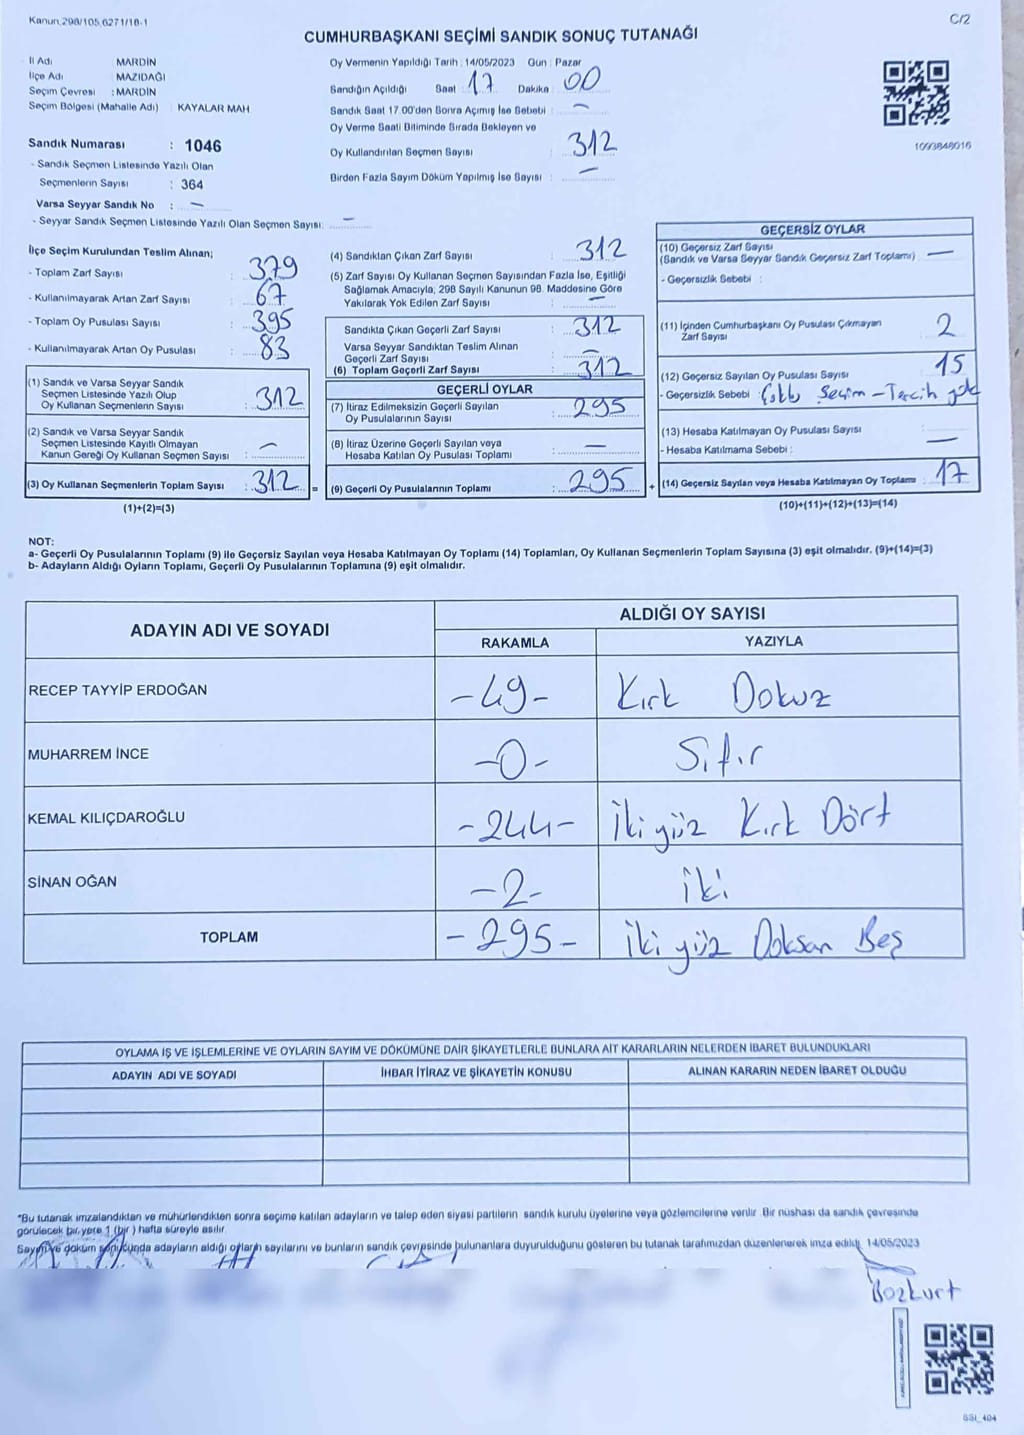 Kanun,298/105,6271/18-1
C/2
CUMHURBAŞKANI SEÇİMİ SANDIK SONUÇ TUTANAĞI
İl Adı MARDİN
İlçe Adı MAZIDAĞI
Seçim Çevresi : MARDİN
Seçim Bölgesi (Mahalle Adı) : KAYALAR MAH
Sandık Numarası : 1046
- Sandık Seçmen Listesinde Yazılı Olan
Seçmenlerin Sayısı : 364
Varsa Seyyar Sandık No : —
- Seyyar Sandık Seçmen Listesinde Yazılı Olan Seçmen Sayısı: —
Oy Vermenin Yapıldığı Tarih : 14/05/2023 Gün : Pazar
Sandığın Açıldığı Saat : 17 Dakika : 00
Sandık Saat 17.00'den Sonra Açımış İse Sebebi : —
Oy Verme Saati Bitiminde Sırada Bekleyen ve
Oy Kullandırılan Seçmen Sayısı : 312
Birden Fazla Sayım Döküm Yapılmış İse Sayısı : —
1093848016
İlçe Seçim Kurulundan Teslim Alınan;
- Toplam Zarf Sayısı : 379
- Kullanılmayarak Artan Zarf Sayısı : 67
- Toplam Oy Pusulası Sayısı : 395
- Kullanılmayarak Artan Oy Pusulası : 83
(1) Sandık ve Varsa Seyyar Sandık
Seçmen Listesinde Yazılı Olup
Oy Kullanan Seçmenlerin Sayısı : 312
(2) Sandık ve Varsa Seyyar Sandık
Seçmen Listesinde Kayıtlı Olmayan
Kanun Gereği Oy Kullanan Seçmen Sayısı : —
(3) Oy Kullanan Seçmenlerin Toplam Sayısı : 312 =
(1)+(2)=(3)
(4) Sandıktan Çıkan Zarf Sayısı : 312
(5) Zarf Sayısı Oy Kullanan Seçmen Sayısından Fazla İse, Eşitliği
Sağlamak Amacıyla, 298 Sayılı Kanunun 98. Maddesine Göre
Yakılarak Yok Edilen Zarf Sayısı : —
Sandıkla Çıkan Geçerli Zarf Sayısı : 312
Varsa Seyyar Sandıktan Teslim Alınan
Geçerli Zarf Sayısı : —
(6) Toplam Geçerli Zarf Sayısı : 312
GEÇERLİ OYLAR
(7) İtiraz Edilmeksizin Geçerli Sayılan
Oy Pusulalarının Sayısı : 295
(8) İtiraz Üzerine Geçerli Sayılan veya
Hesaba Katılan Oy Pusulası Toplamı : —
(9) Geçerli Oy Pusulalarının Toplamı : 295 +
GEÇERSİZ OYLAR
(10) Geçersiz Zarf Sayısı
(Sandık ve Varsa Seyyar Sandık Geçersiz Zarf Toplamı) : —
- Geçersizlik Sebebi :
(11) İçinden Cumhurbaşkanı Oy Pusulası Çıkmayan
Zarf Sayısı : 2
(12) Geçersiz Sayılan Oy Pusulası Sayısı : 15
- Geçersizlik Sebebi : Seçim - Tercih
(13) Hesaba Katılmayan Oy Pusulası Sayısı :
- Hesaba Katılmama Sebebi : —
(14) Geçersiz Sayılan veya Hesaba Katılmayan Oy Toplamı : 17
(10)+(11)+(12)+(13)=(14)
NOT:
a- Geçerli Oy Pusulalarının Toplamı (9) ile Geçersiz Sayılan veya Hesaba Katılmayan Oy Toplamı (14) Toplamları, Oy Kullanan Seçmenlerin Toplam Sayısına (3) eşit olmalıdır. (9)+(14)=(3)
b- Adayların Aldığı Oyların Toplamı, Geçerli Oy Pusulalarının Toplamına (9) eşit olmalıdır.
ADAYIN ADI VE SOYADI ALDIĞI OY SAYISI
RAKAMLA YAZIYLA
RECEP TAYYİP ERDOĞAN -49- Kırk Dokuz
MUHARREM İNCE -0- Sıfır
KEMAL KILIÇDAROĞLU -244- İki yüz Kırk Dört
SİNAN OĞAN -2- İki
TOPLAM -295- İki yüz Doksan Beş
OYLAMA İŞ VE İŞLEMLERİNE VE OYLARIN SAYIM VE DÖKÜMÜNE DAİR ŞİKAYETLERLE BUNLARA AİT KARARLARIN NELERDEN İBARET BULUNDUKLARI
ADAYIN ADI VE SOYADI İHBAR İTİRAZ VE ŞİKAYETİN KONUSU ALINAN KARARIN NEDEN İBARET OLDUĞU
*Bu tutanak imzalandıktan ve mühürlendikten sonra seçime katılan adayların ve talep eden siyasi partilerin sandık kurulu üyelerine veya gözlemcilerine verilir. Bir nüshası da sandık çevresinde
görülecek bir yere 1 (bir) hafta süreyle asılır.
Sayım ve döküm sonucunda adayların aldığı oyların sayılarını ve bunların sandık çevresinde bulunanlara duyurulduğunu gösteren bu tutanak tarafımızdan düzenlenerek imza edildi. 14/05/2023
Bozkurt
SSI_404